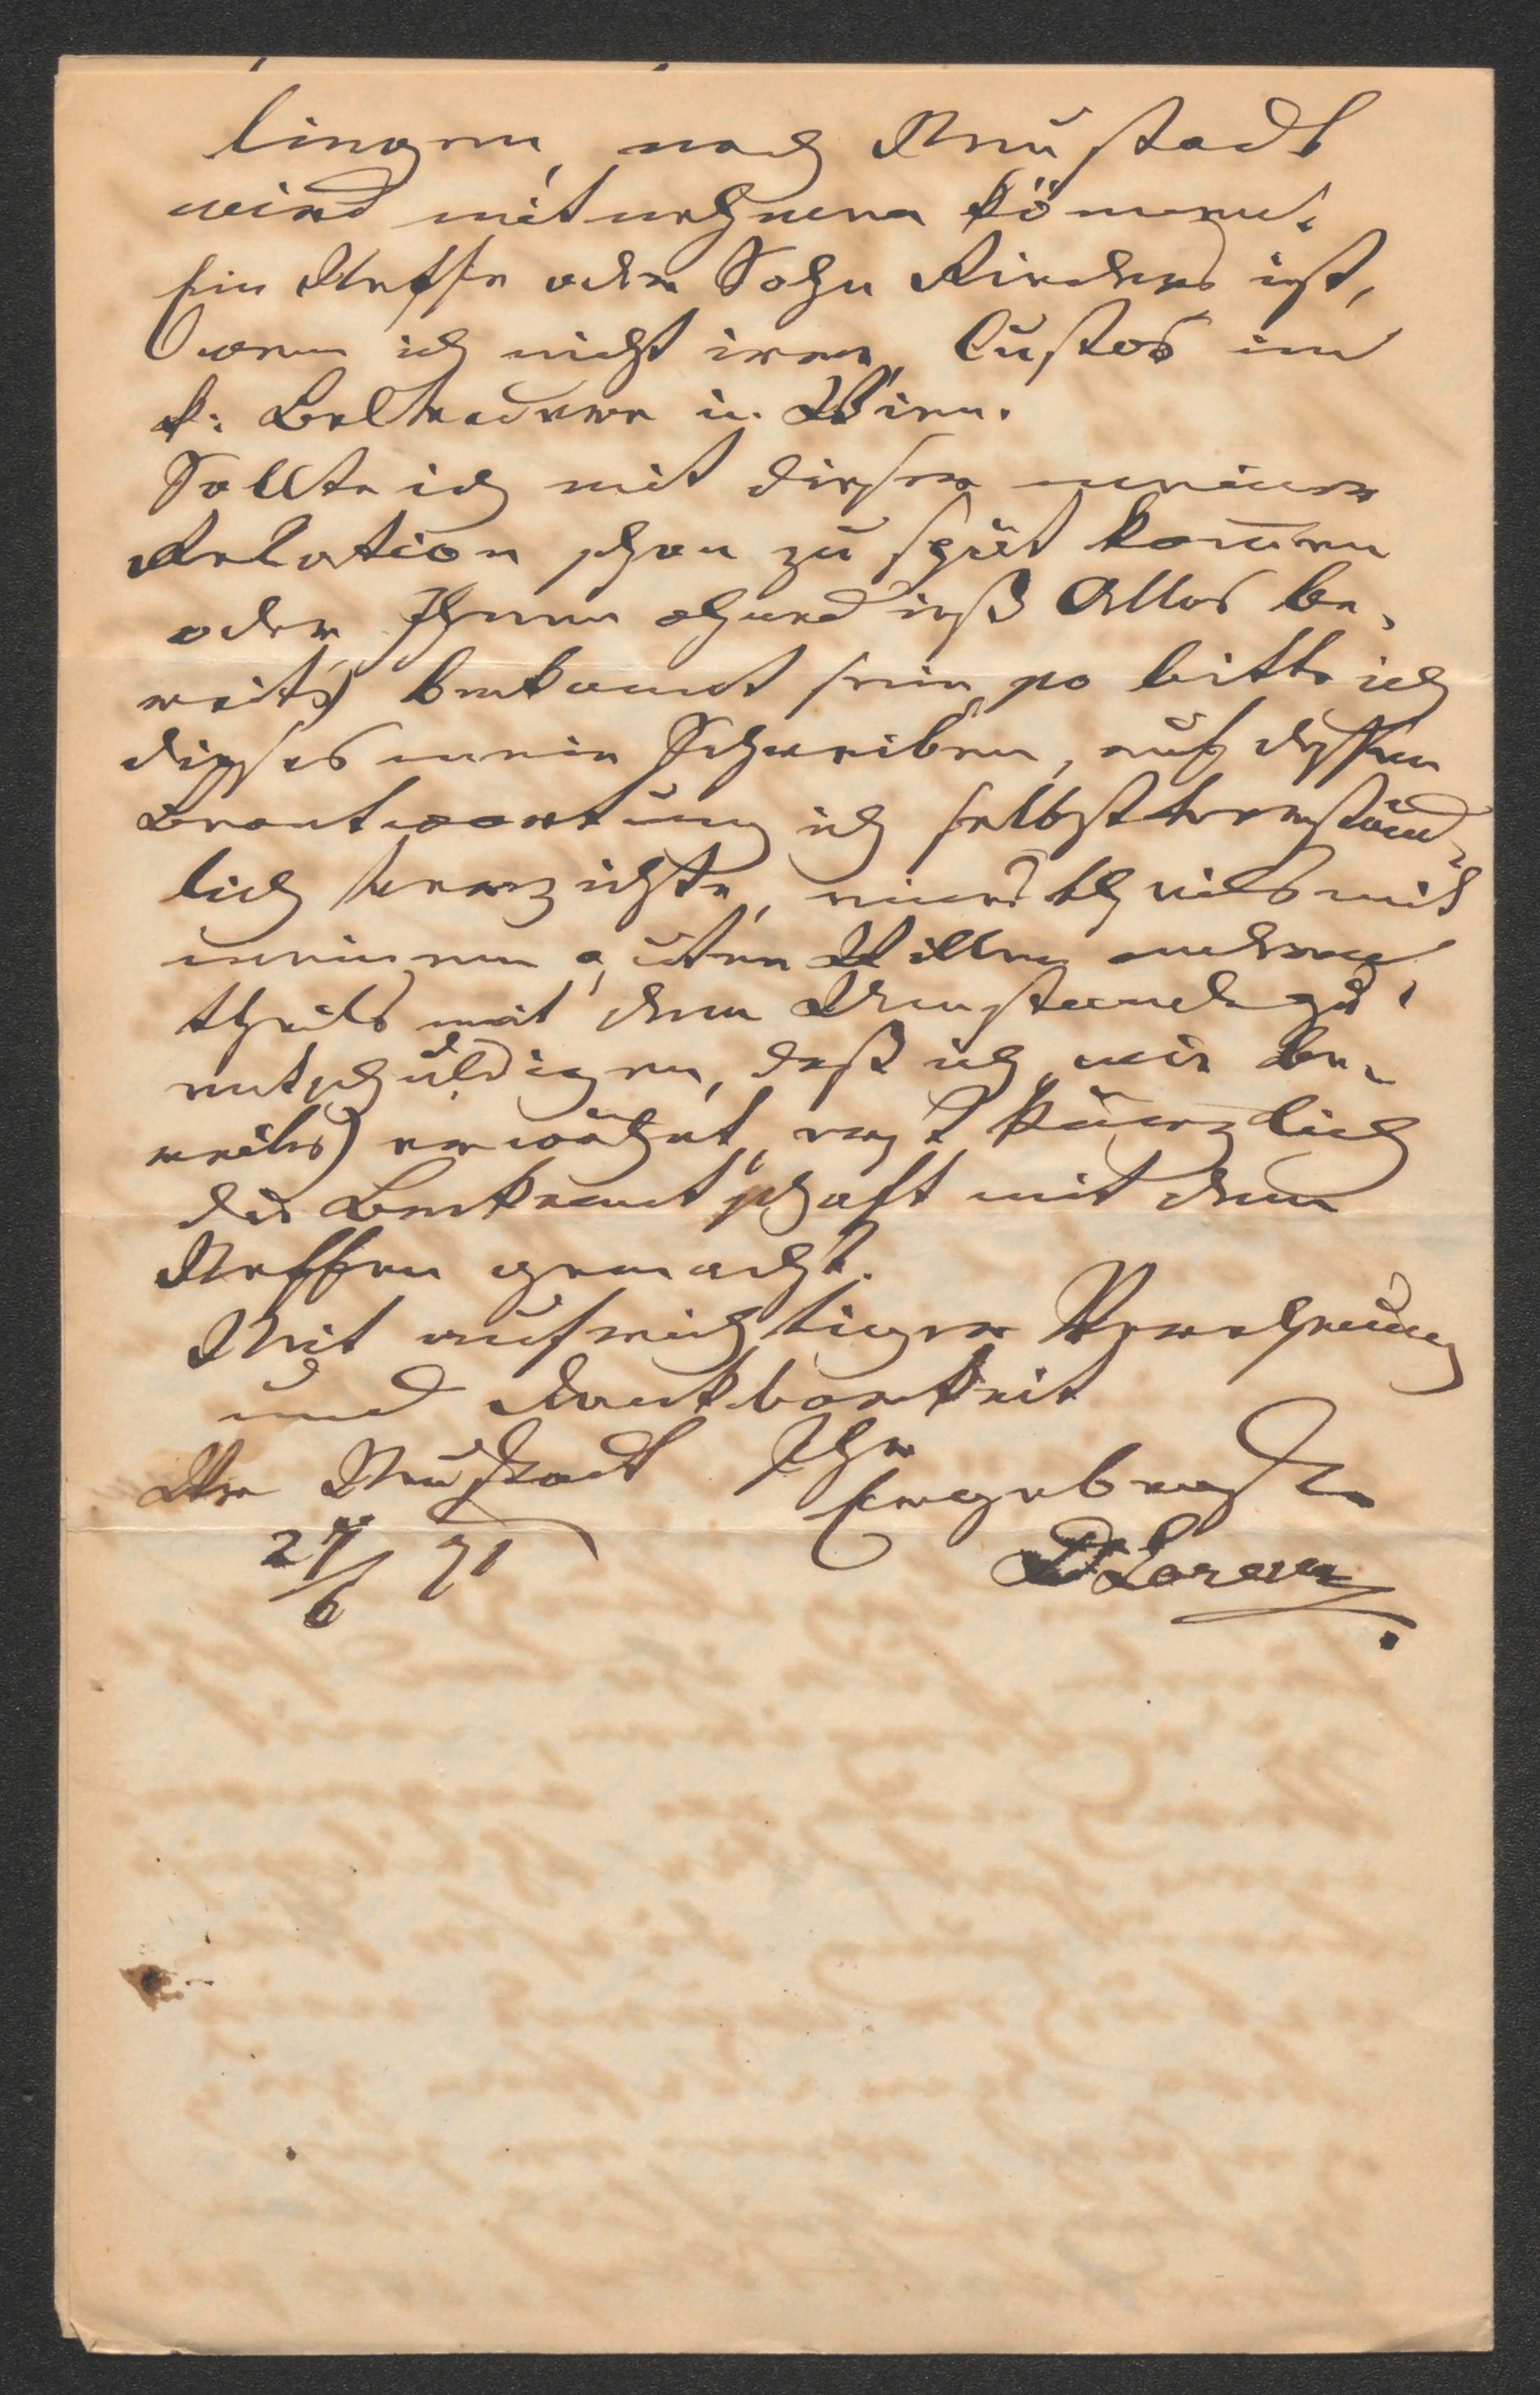 lingen, nach Neustadt
wird mitnehmen können.
Ein Neffe oder Sohn Rieders ist,
wenn ich nicht irre, Custos im
k: Belvedere in Wien.
Sollte ich mit dieser meiner
Relation schon zu spät kom̄en
oder Ihnen ohnedieß Alles be,
reits bekannt sein, so bitte ich
dieses mein Schreiben, auf dessen
Beantwortung ich selbstverständ,
lich verzichte, einestheils mit
meinem guten Willen anderen
theils mit dem Umstande zu
entschuldigen, daß ich, wie be,
reits erwähnt, erst kürzlich
die Bekanntschaft mit dem
Neffen gemacht.
Mit aufrichtiger Verehrung
und Dankbarkeit
Wr Neustadt Ihr
Ergebenster
27/6 71 Lorenz